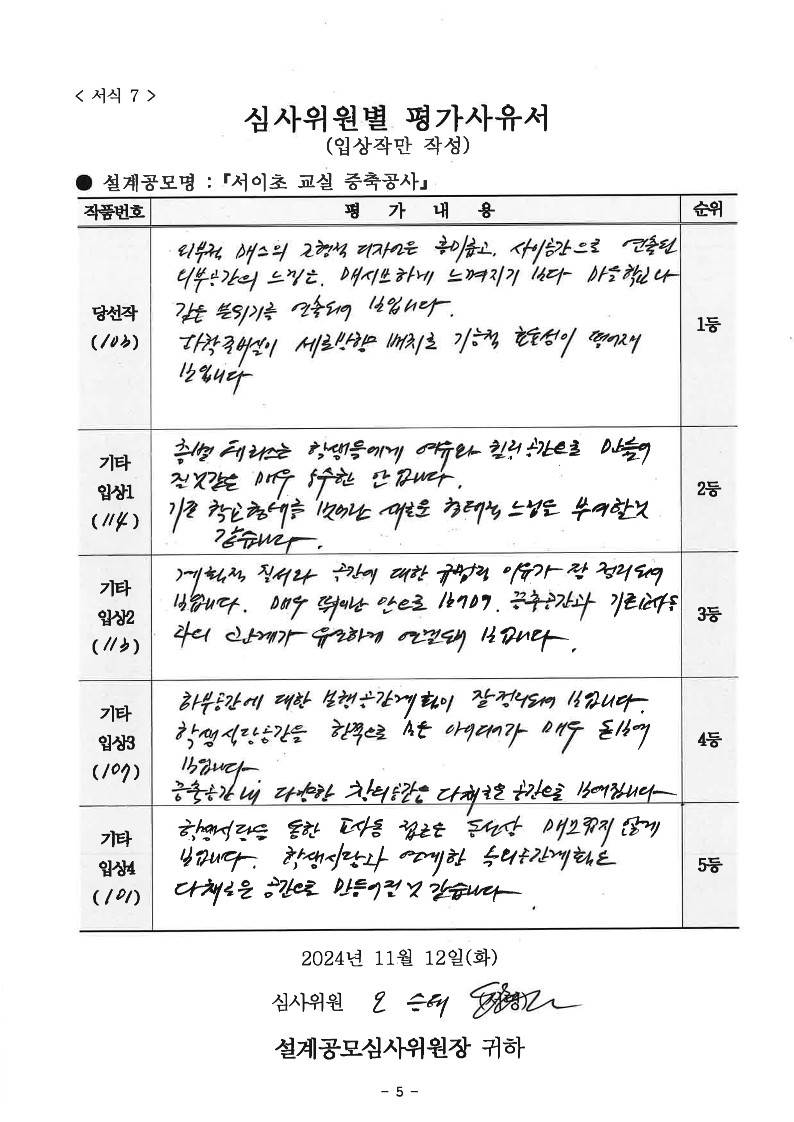 < 서식 7 >
심사위원별 평가사유서
(입상작만 작성)
● 설계공모명 : 『서이초 교실 증축공사』
작품번호 평 가 내 용 순위
당선작
(106)
외부적 매스의 조형적 디자인은 흥미롭고, 사이공간으로 연출된
외부공간의 느낌은, 매시브하게 느껴지기 보다 마을학교나
같은 분위기를 연출되어 보입니다.
세로방향 배치로 기능적 효율성이 떨어져
보입니다
1등
기타
입상1
(114)
층별 테라스는 학생들에게 여유와 힐링공간으로 만들어
질것같은 매우 우수한 안입니다.
기존 학교형태를 벗어난 새로운 형태적 느낌을 부여할것
같습니다.
2등
기타
입상2
(113)
계획적 질서와 공간에 대한 이유가 잘 정리되어
보입니다. 매우 뛰어난 안으로 보이며, 증축공간과 기존교사동
과의 관계가 유연하게 연결돼 보입니다.
3등
기타
입상3
(107)
하부공간에 대한 보행공간계획이 잘정리되어 보입니다.
학생식당공간을 한쪽으로 모은 아이디어가 매우 돋보여
보입니다.
증축공간내 다양한 창의공간은 다채로운 공간으로 보여집니다
4등
기타
입상4
(101)
학생식당을 통한 교사동 접근은 동선상 매끄럽지 않게
보입니다. 학생식당과 연계한 옥외공간계획은
다채로운 공간으로 만들어진것 같습니다.
5등
2024년 11월 12일(화)
심사위원 오 승태
설계공모심사위원장 귀하
- 5 -